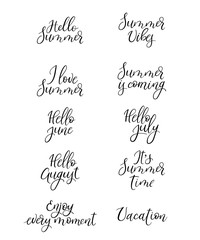 Hello
Summer
Summer
Vibes
I love
Summer
Summer
is coming
Hello
june
Hello
july
Hello
August
It's
Summer
Time
Enjoy
every moment
Vacation